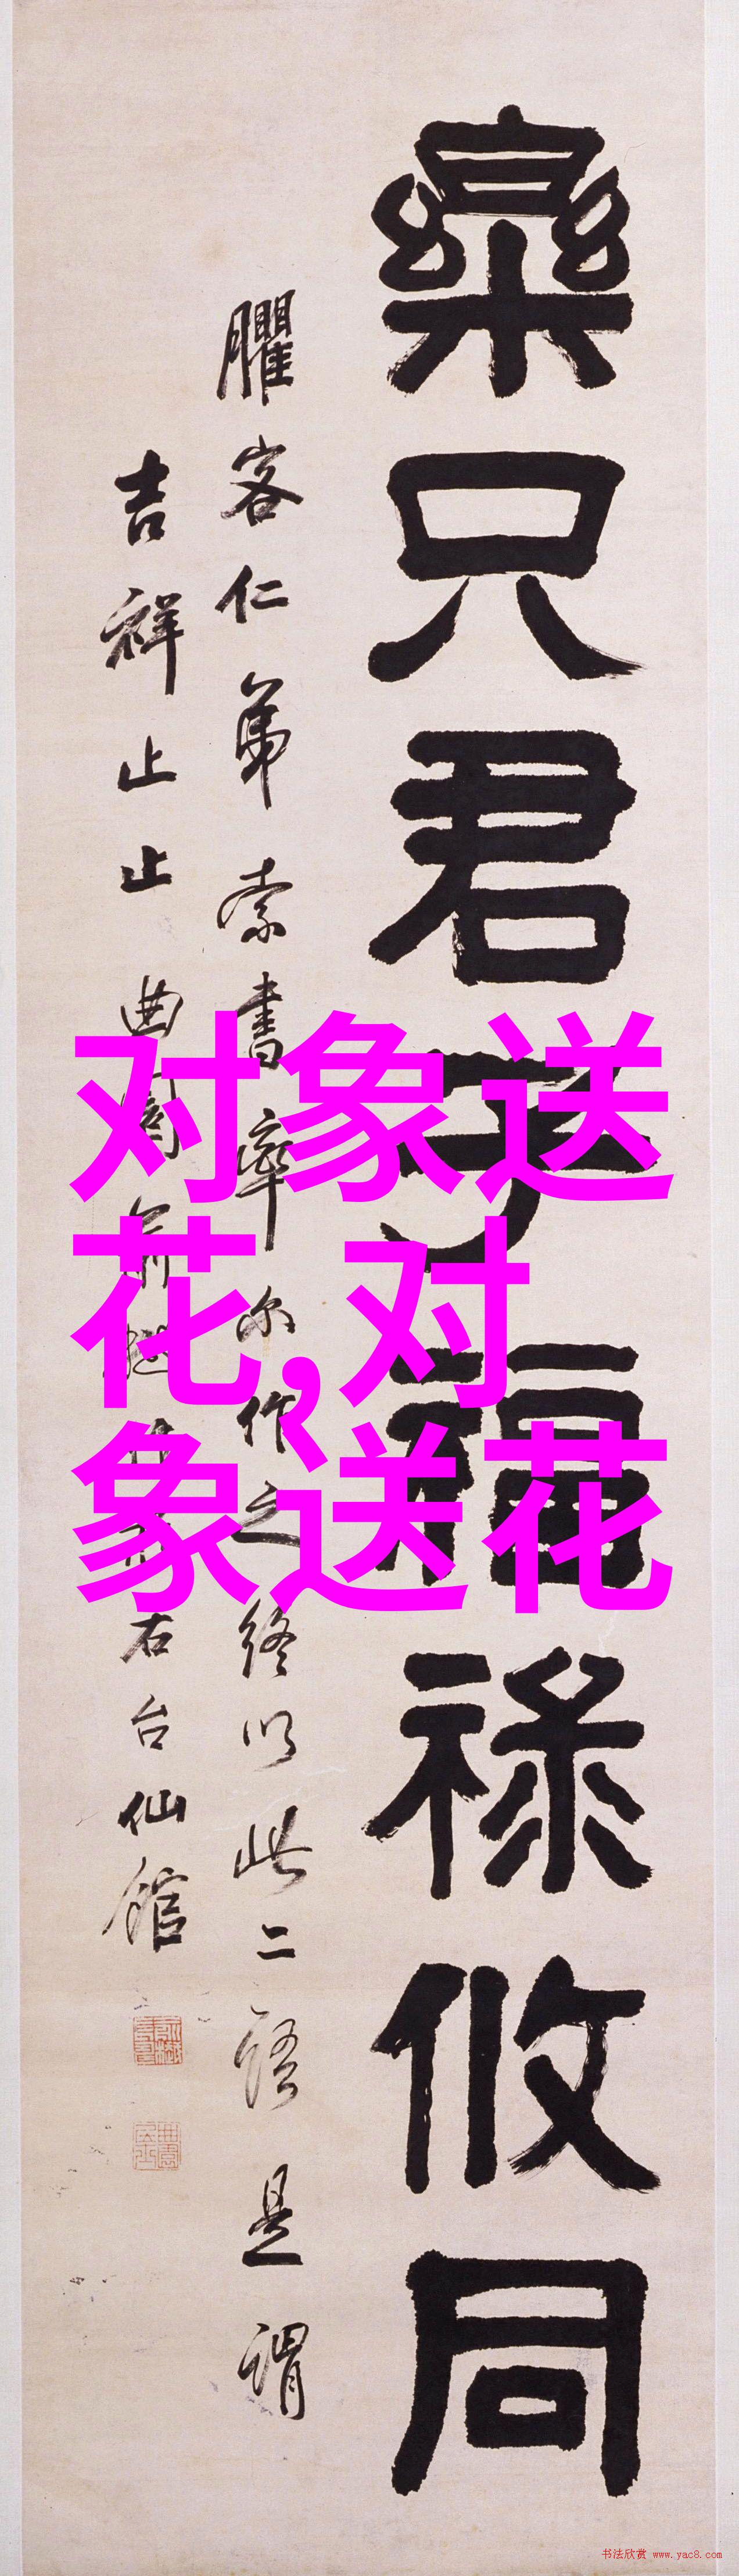 樂只君子福祿攸同
臞客仁弟索書率尔作之終以此二語是謂
吉祥止止曲園俞樾
右台仙館
对象送
花,对
象送花
书法欣赏 www.yac8.com